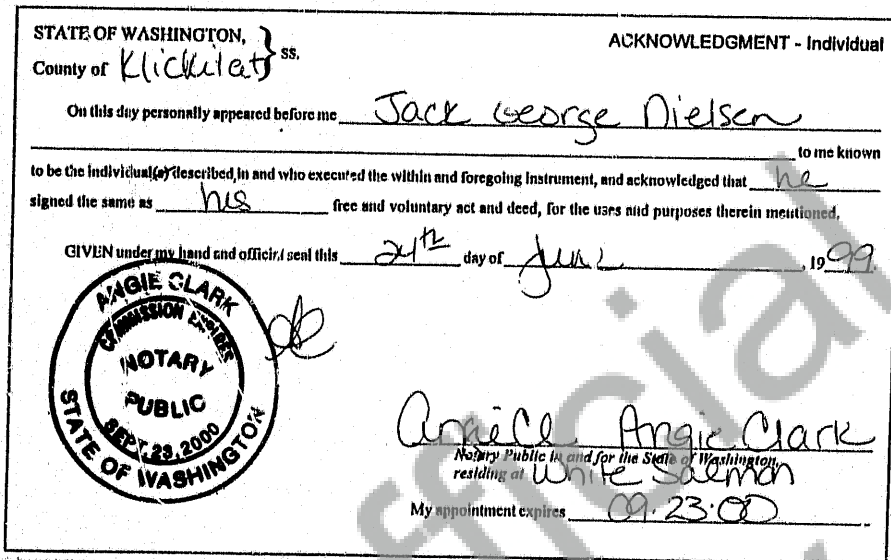 STATE OF WASHINGTON, } ss.
ACKNOWLEDGMENT - Individual
County of Klickitat
On this day personally appeared before me Jack George Nielsen
to me known
to be the individual(s) described in and who executed the within and foregoing instrument, and acknowledged that he
signed the same as his free and voluntary act and deed, for the uses and purposes therein mentioned.
GIVEN under my hand and official seal this 24th day of June, 1999
ANGIE CLARK
COMMISSION EXPIRES
NOTARY
PUBLIC
SEPT. 23, 2000
STATE OF WASHINGTON
Angie Cl Angie Clark
Notary Public in and for the State of Washington,
residing at White Salmon
My appointment expires 09-23-00